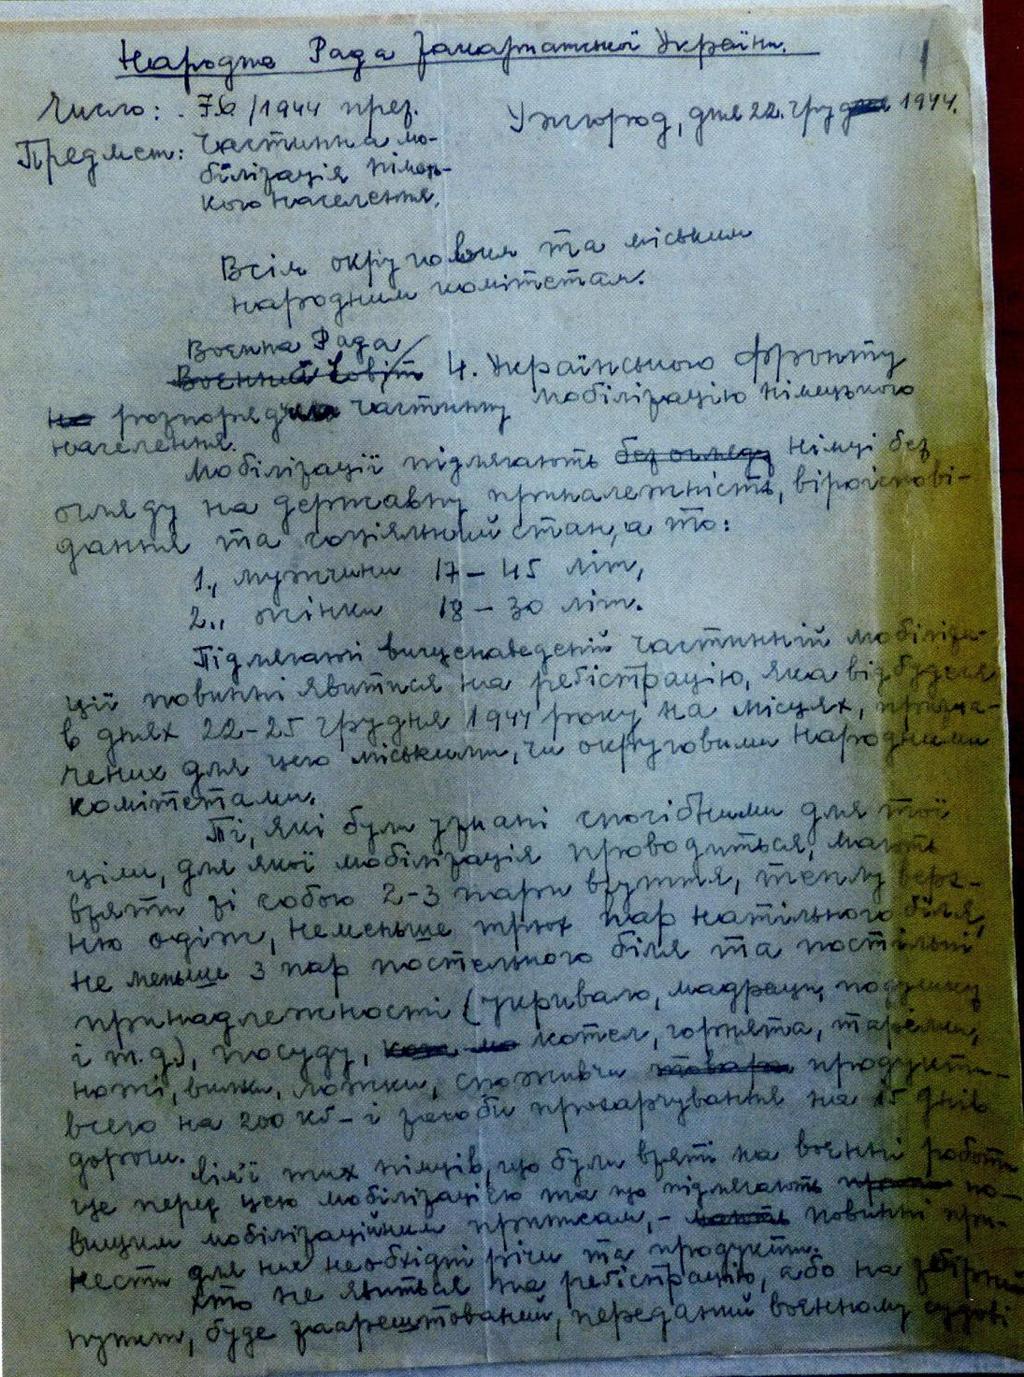 Народна Рада Закарпатської України.
1
Число: 76/1944 през.
Ужгород, дня 22. грудня 1944.
Предмет: Частинна мо-
білізація німець-
кого населення.
Всім окружовим та міським
народним комітетам.
Воєнна Рада
Воєнний Совіт 4. Українського фронту
на розпорядила частинну мобілізацію німецького
населення.
Мобілізації підлягають без огляду німці без
огляду на державну приналежність, віроіспові-
дання та соціяльний стан, а то:
1., мужчини 17 – 45 літ,
2., жінки 18 – 30 літ.
Підлягаючі вищенаведеній частинній мобіліза-
ції повинні явитися на реєстрацію, яка відбудеся
в днях 22–25 грудня 1944 року на місцях, призна-
чених для цего міськими, чи окружовими народними
комітетами.
Ті, які були узнані спосібними для тої
ціли, для якої мобілізація проводиться, мають
взяти зі собою 2–3 пари взуття, теплу верх-
ню одіж, неменьше трьох пар натільного біля,
не меньше 3 пар постельного біля та постільні
принадлежності (укривало, мадрацы, подушку
і т.д.), посуду, котел, горнята, тарелки,
ножі, вилки, ложки, споживчи товари продукти –
всего на 200 кг – і засоби прохарчування на 15 днів
дороги.
Сім'ї тих німців, що були взяті на воєнні роботи
ще перед цею мобілізацією та що підлягають по-
вищим мобілізаційним приписам, – мають повинні при-
нести для них необхідні річи та продукти.
Хто не явиться на реєстрацію, або на збірний
пункт, буде заарештований, переданий воєнному судові